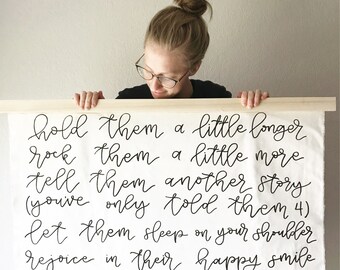 hold them a little longer
rock them a little more
tell them another story
(you've only told them 4)
let them sleep on your shoulder
rejoice in their happy smile